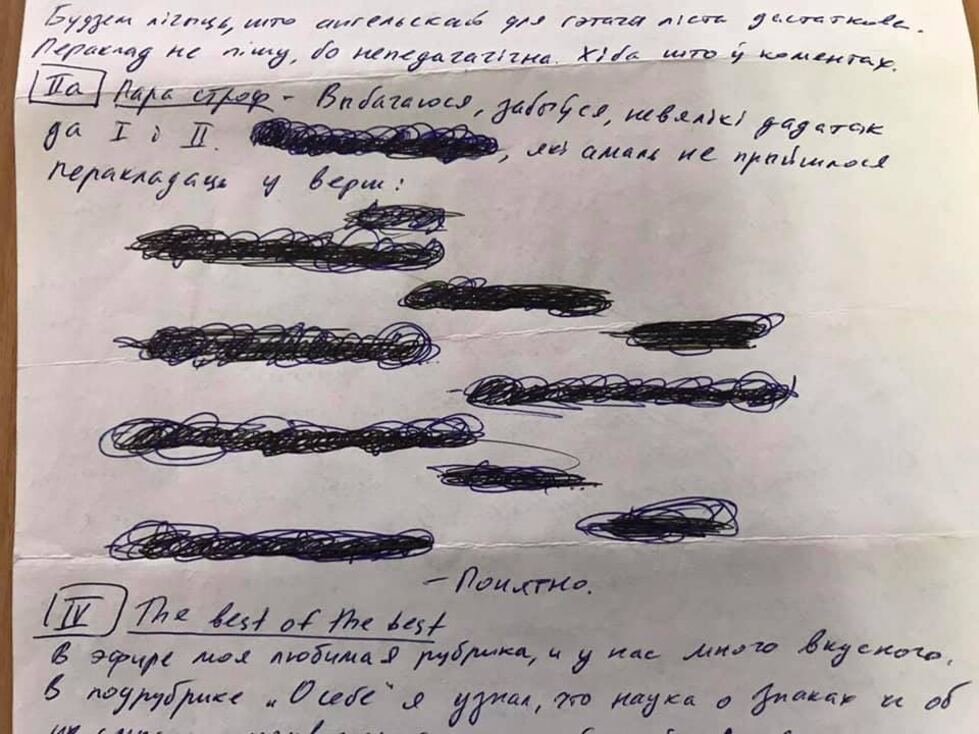 Будзем лічыць, што ангельскай для гэтага ліста дастаткова.
Пераклад не пішу, бо непедагагічна. Хіба што ў каментах.
IIa Пара строф - Выбачаюся, забыўся, невялікі дадатак
да I і II. , які амаль не прыйшлося
перакладаць у верш:
- Понятно.
IV The best of the best
В эфире моя любимая рубрика, и у нас много вкусного.
В подрубрике „О себе“ я узнал, что наука о знаках и об